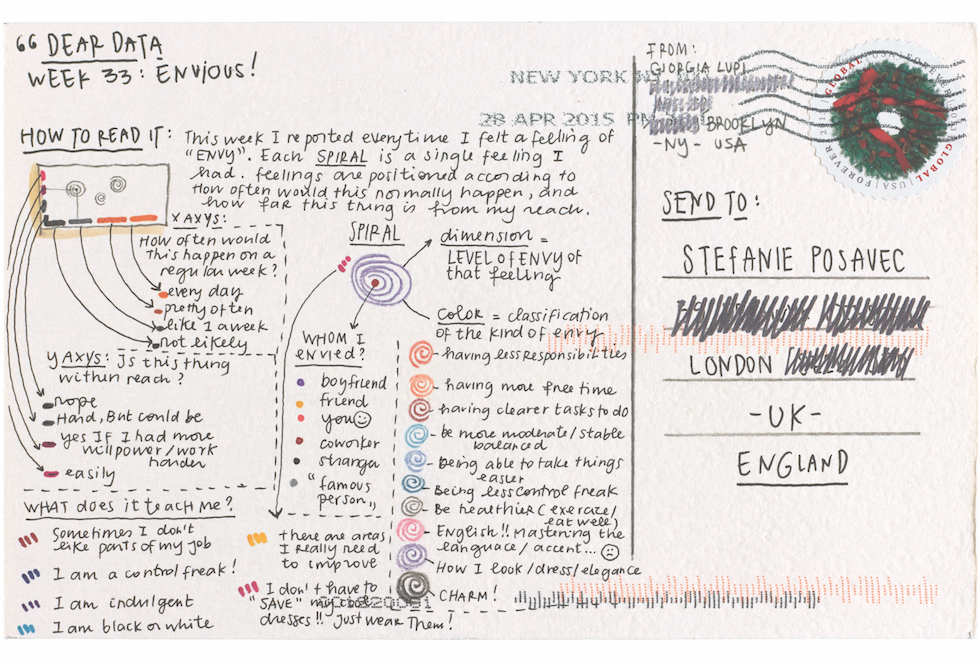 “ DEAR DATA
WEEK 33: ENVIOUS!
HOW TO READ IT:
This week I reported everytime I felt a feeling of
"ENVY". Each SPIRAL is a single feeling I
had. feelings are positioned according to
How often would this normally happen, and
how far this thing is from my reach.
X AXYS:
How often would
this happen on a
regular week?
every day
pretty often
like 1 a week
not likely
Y AXYS: Is this thing
within reach?
nope
Hard, But could be
yes If I had more
willpower/work
harder
easily
SPIRAL
dimension =
LEVEL OF ENVY of
that feeling
COLOR = classification
of the kind of envy
WHOM I
envied?
boyfriend
friend
you
coworker
stranger
"famous
person"
having less responsibilities
having more free time
having clearer tasks to do
be more moderate/stable
balanced
being able to take things
easier
Being less control freak
Be healthier (exercize/
eat well)
English!! Mastering the
language/accent...
How I look/dress/elegance
CHARM!
WHAT does it teach me?
Sometimes I don't
like parts of my job
I am a control freak!
I am indulgent
I am black or white
there are areas
I really need
to improve
I don't have to
"SAVE" my cool
dresses!! Just wear Them!
FROM:
GIORGIA LUPI
BROOKLYN
-NY- USA
NEW YORK NY
28 APR 2015 PM
GLOBAL USA FOREVER
GLOBAL USA FOREVER
SEND TO:
STEFANIE POSAVEC
LONDON
-UK-
ENGLAND